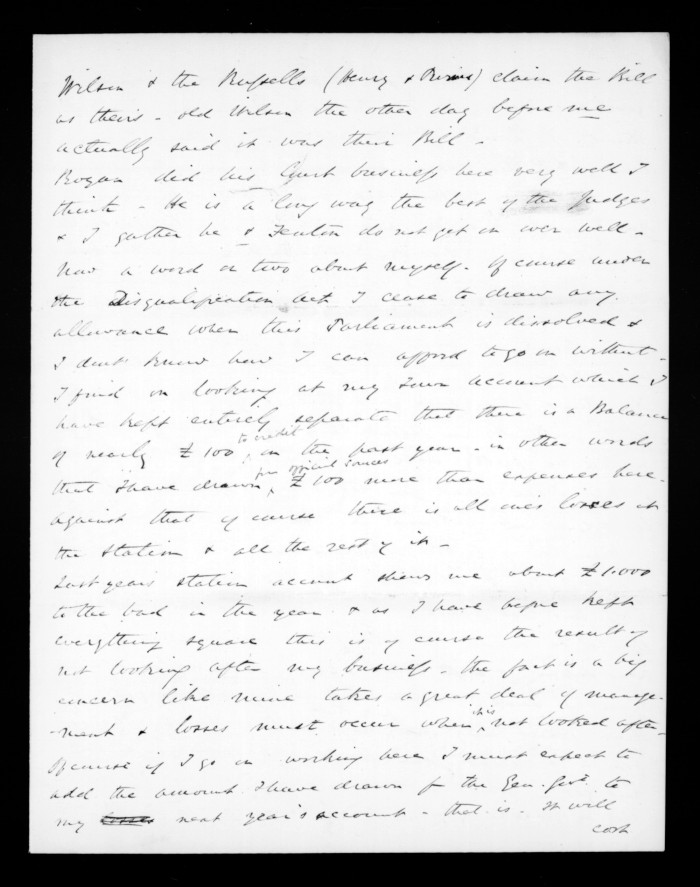 Wilson & the Russells (Henry & Purvis) claim the Bill
as theirs - old Wilson the other day before me
actually said it was their Bill -
Rogan did his Court business here very well I
think - He is a long way the best of the Judges
& I gather he & Fenton do not get on over well -
Now a word or two about myself. Of course under
the Disqualification Act I cease to draw any
allowance when this Parliament is dissolved &
I don't know how I can afford to go on without -
I find on looking at my Town account which I
have kept entirely separate that there is a Balance
of nearly £100 to credit, on the past year - in other words
that I have drawn from official sources £100 more than expenses here -
against that of course there is all one's losses at
the station & all the rest of it -
Last year's station account shews me about £1.000
to the bad in the year & as I have before kept
everything square this is of course the result of
not looking after my business - the fact is a big
concern like mine takes a great deal of manage-
-ment & losses must occur when it is not looked after -
Of course if I go on working here I must expect to
add the amount I have drawn fm the Gen. Govt. to
my next year's account - that is - It will
cost